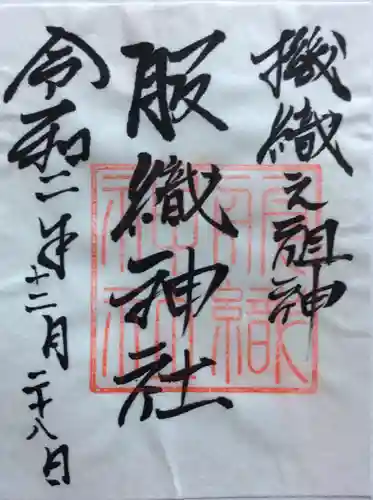 機織之祖神
服織神社
令和二年十二月二十八日
服織神社